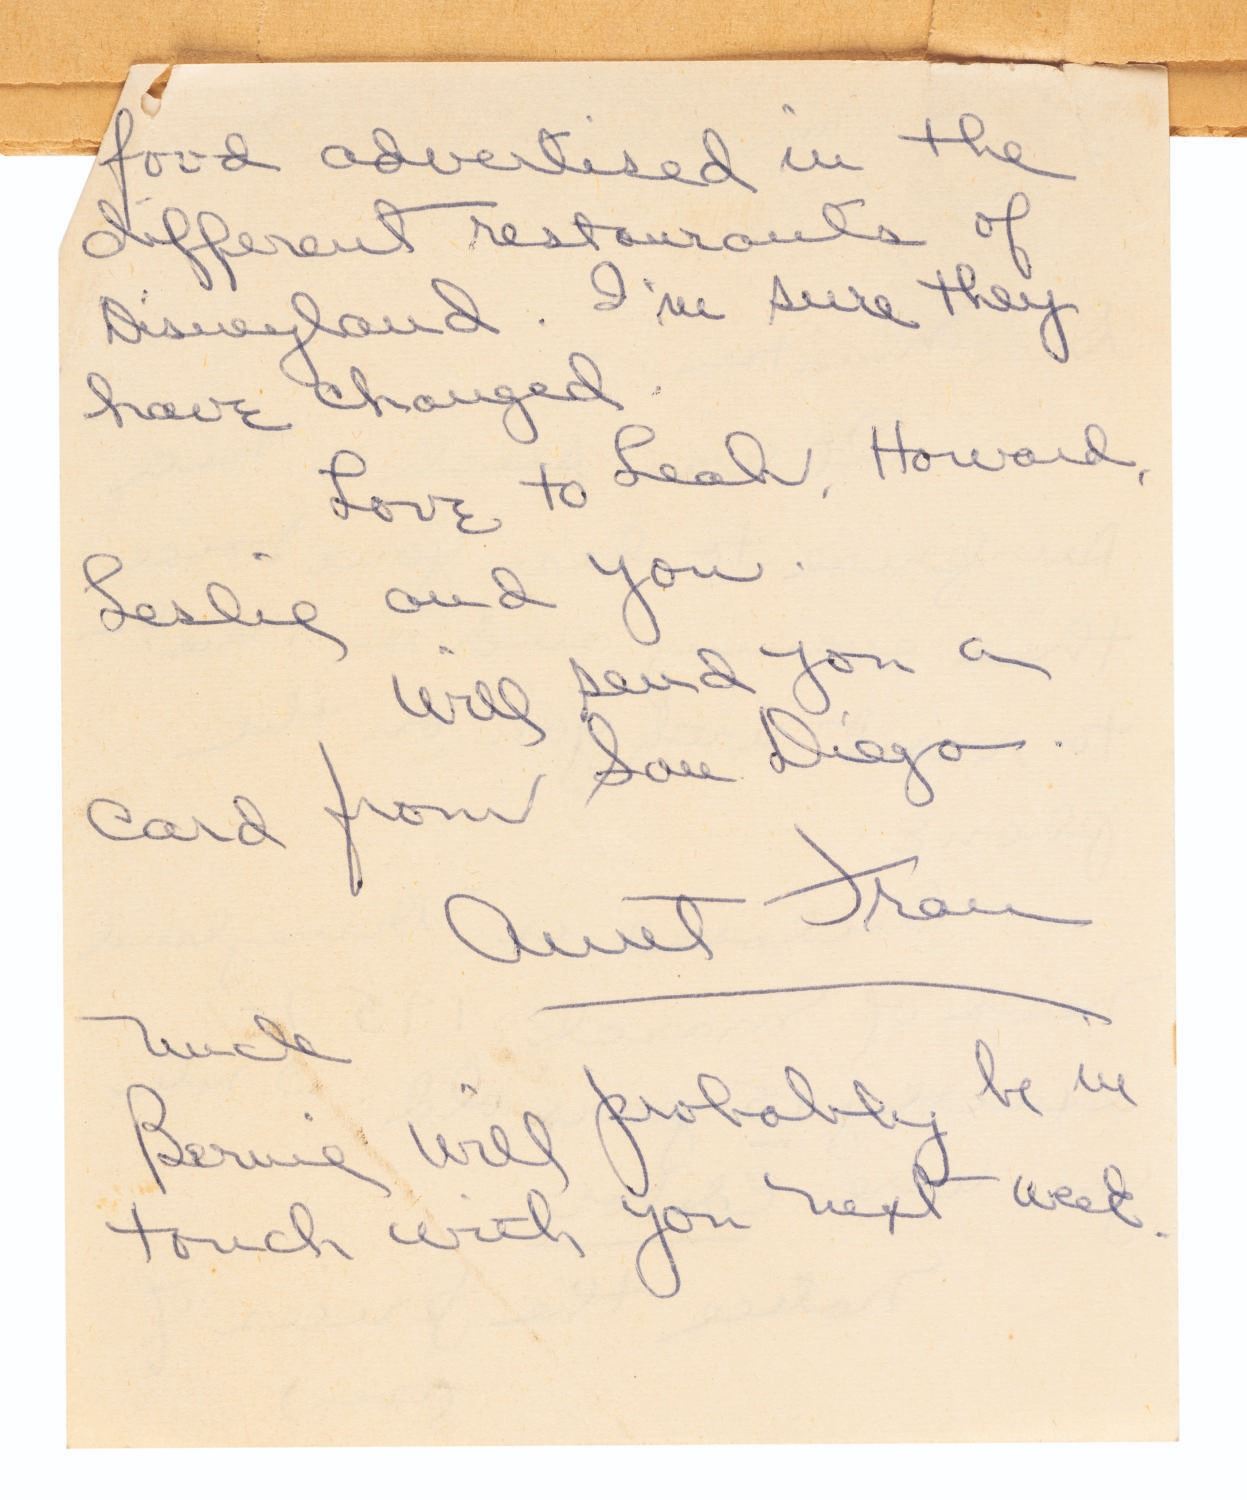 food advertised in the
different restaurants of
Disneyland. I'm sure they
have changed.
Love to Leah, Howard,
Leslie and you.
Will send you a
card from San Diego.
Aunt Fran
Uncle
Bernie will probably be in
touch with you next week.